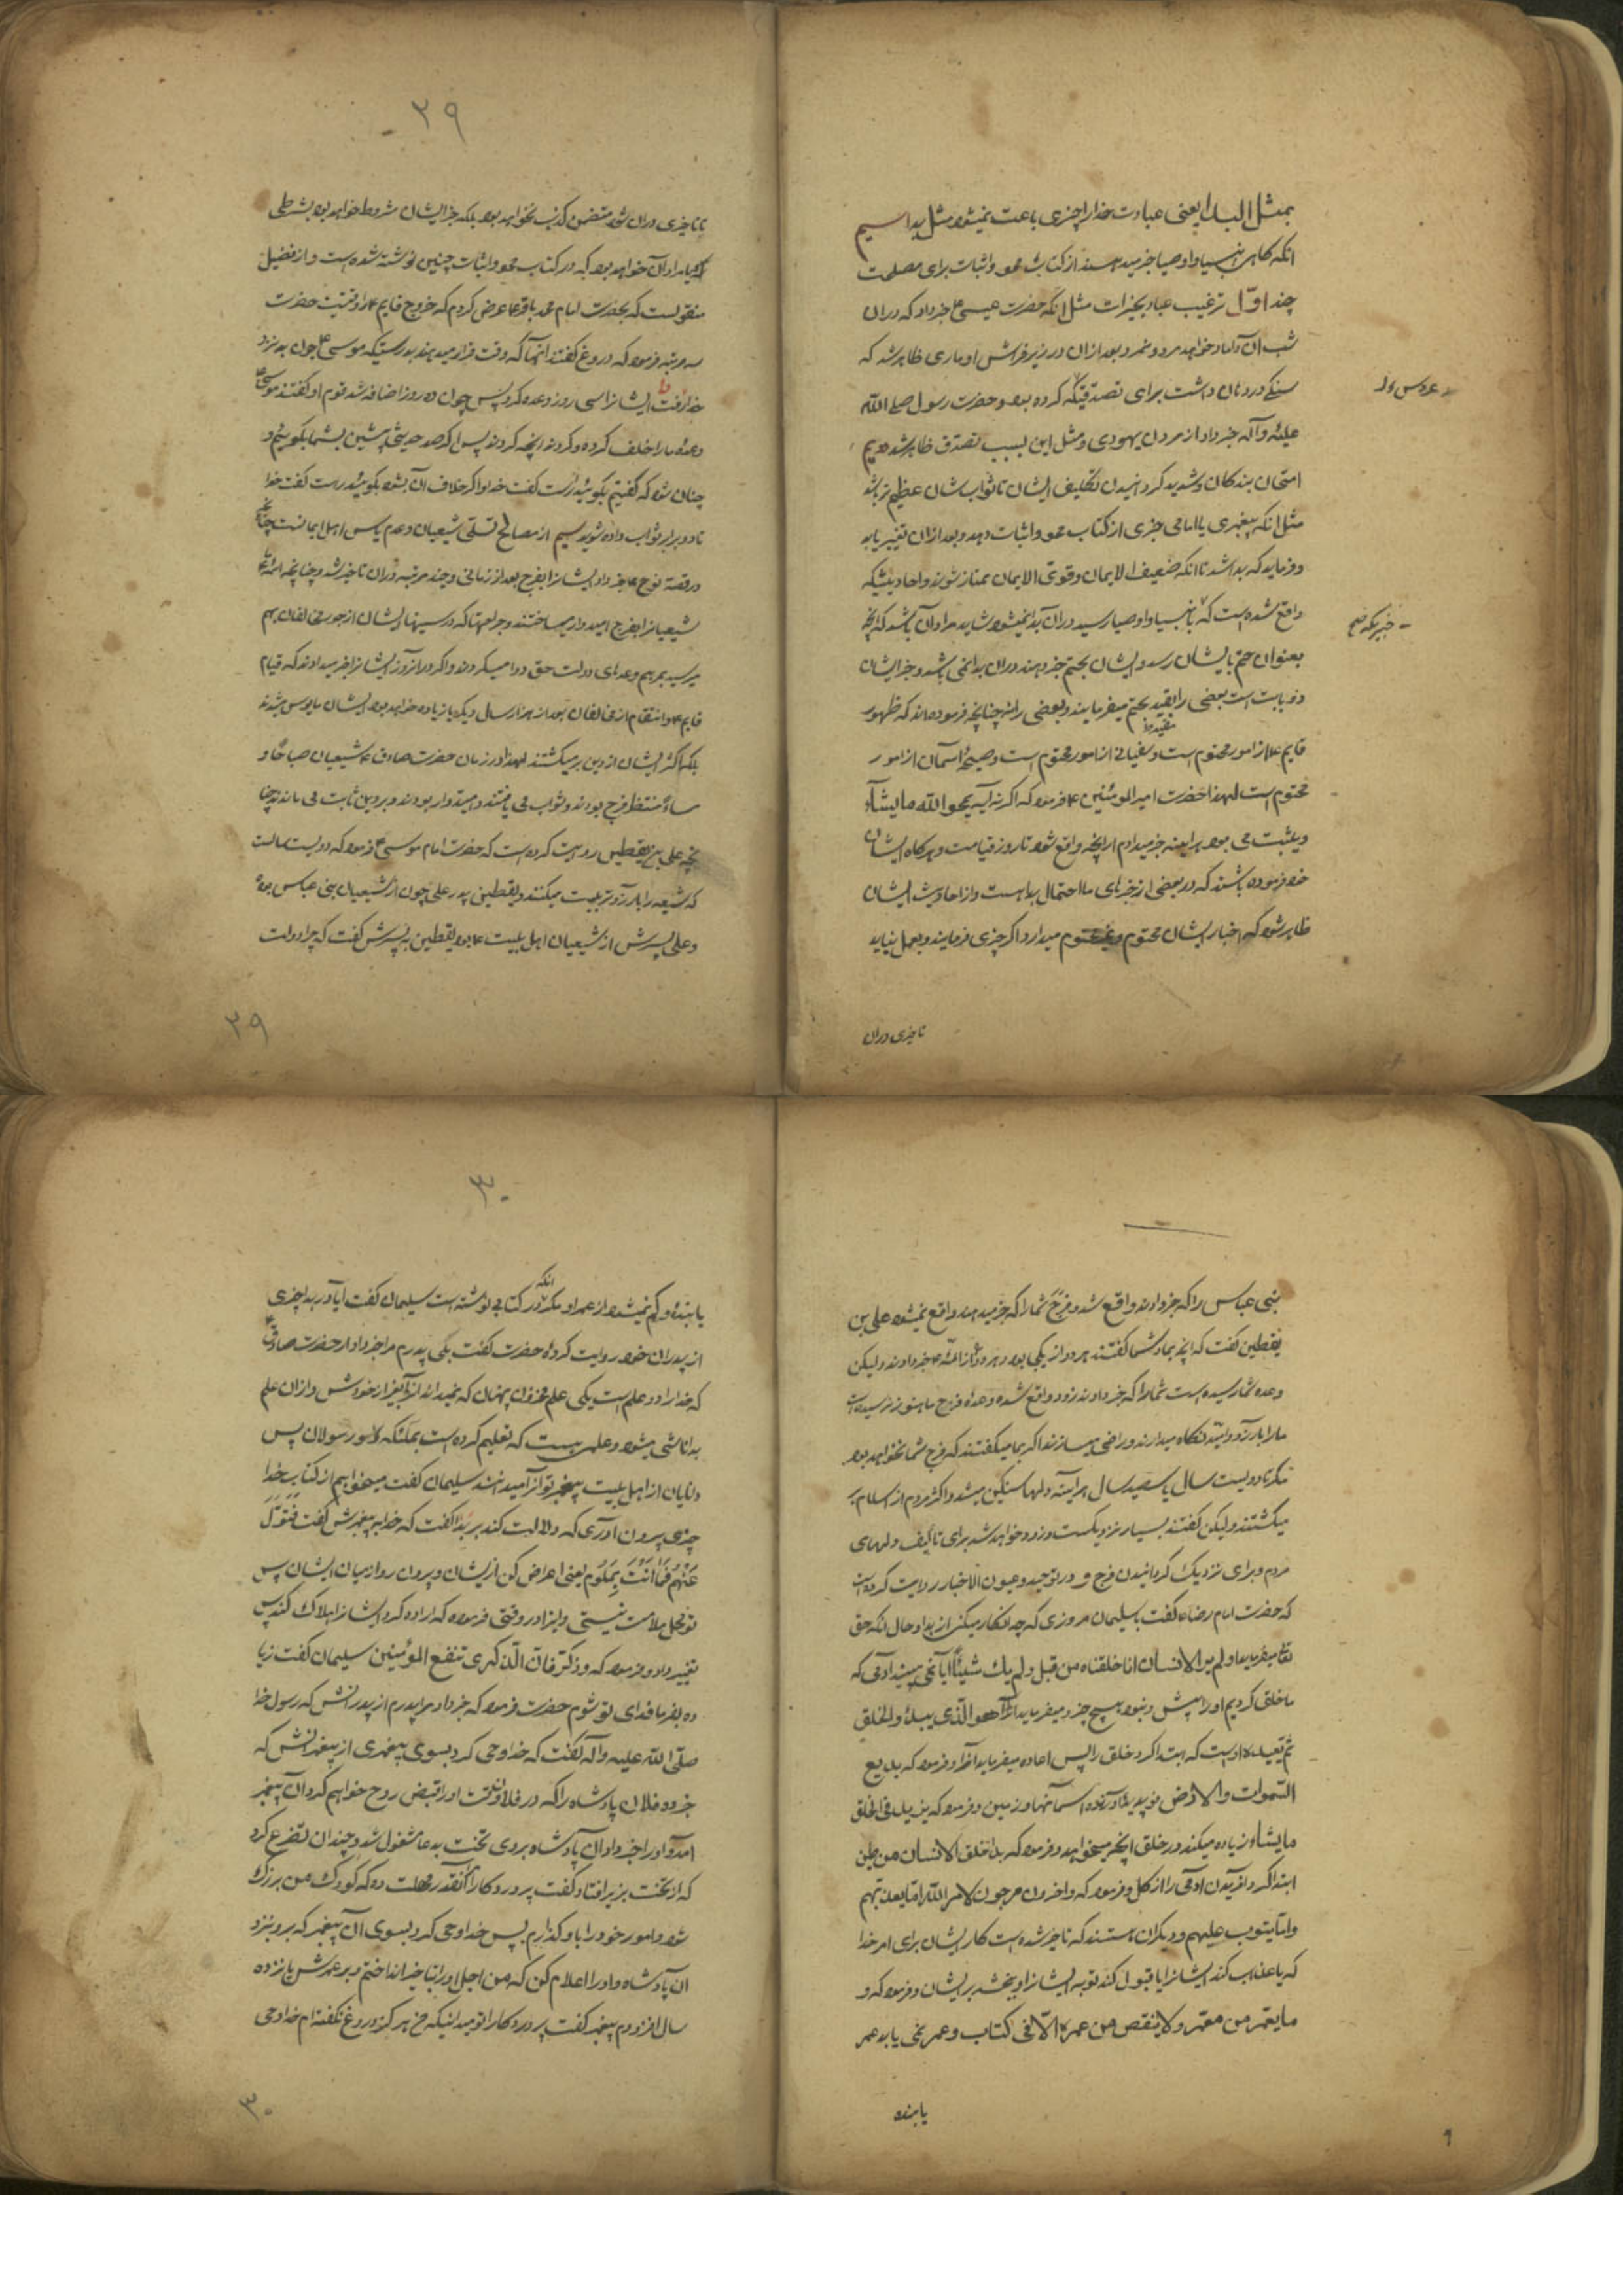 بمثل البدا یعنی عبادت خدا را چیزی باعث نمیشود مثل بدا سیم
انکه کاهی انبیا و اوصیا خبر میدهند از کتاب محو و اثبات برای مصلحت
چند اوّل ترغیب عباد بخیرات مثل انکه حضرت عیسی ع خبر داد که در ان
شب ان داماد خواهد مرد و نمرد بعد از ان در زیر فراش او ماری ظاهر شد که
سنکی در دهان داشت برای تصدقیکه کرده بود و حضرت رسول صلی الله
علیه وآله خبر داد از مردن یهودی و مثل این بسبب تصدق ظاهر شد دویم
امتحان بندکان و شدید کردانیدن تکلیف ایشان تا ثواب شان عظیم تر باشد
مثل انکه پیغمبری یا امامی خبری از کتاب محو و اثبات دهد و بعد از ان تغییر یابد
و فرماید که بدا شد تا انکه ضعیف الایمان و قوی الایمان ممتاز شوند و احادیثیکه
واقع شده است که بانبیا و اوصیا رسید در ان بدا نمیشود شاید مراد ان باشد که انچه
بعنوان حتم بایشان رسد و ایشان بحتم خبر دهند در ان بدا نمی باشد و خبر ایشان
دو بابت است بعضی را بقید بحتم میفرمایند و بعضی را نه چنانچه فرموده اند که ظهور
قایم ع از امور محتوم است و سفیانی از امور محتوم است و صیحهٔ اسمان از امور
محتوم است لهذا حضرت امیر المومنین ع فرمود که اکر نه آیه یمحو الله ما یشآء
و یثبت می بود هر اینه خبر میدادم از انچه واقع شود تا روز قیامت و هرکاه ایشان
خود فرموده باشند که در بعضی از خبرهای ما احتمال بدا هست و از احادیث ایشان
ظاهر شود که اخبار ایشان محتوم و غیر محتوم میدارد اکر چیزی فرمایند و بعمل نیاید
تاخیری در ان
عروس ول
خبریکه
۲۹
تاخیری در ان شود متضمن کذب نخواهد بود بلکه خبر ایشان مشروط خواهد بود بشرطی
یا مراد آن خواهد بود که در کتاب محو و اثبات چنین نوشته شده است و از فضیل
منقولست که بحضرت امام محمد باقر ع عرض کردم که خروج قایم ع را وقتیت حضرت
سه مرتبه فرمود که دروغ کفتند انهآ که وقت قرار میدهند بدرستیکه موسی ع چون به نزد
خدا رفت ایشانرا سی روز وعده کرد پس چون ده روز اضافه شد قوم او کفتند موسی
وعدهٔ ما را خلف کرده و کردند انچه کردند پس اکر حدیثی پیشین بشما بکوییم و
چنان شود که کفتیم بکویید راست کفت خدا و اکر خلاف آن بشود بکویید راست کفت خدا
تا دو برابر ثواب داده شوید سیم از مصالح تسلّی شیعیان و عدم یاس اهل ایمانست چنانچه
در قصهٔ نوح ع خبر داد ایشانرا بفرج بعد از زمانی و چند مرتبه در ان تاخیر شد و چنانچه ائمه ع
شیعیانرا بفرج امیدوار میساختند و جراحتها که در سینهای ایشان از جور مخالفان بهم
میرسید بمرهم وعدهای دولت حق دوا میکردند و اکر در انروز ایشانرا خبر میدادند که قیام
قایم ع و انتقام از مخالفان بعد از هزار سال دیکر یا زیاده خواهد بود ایشان مایوس میشدند
بلکه اکثر ایشان از دین برمیکشتند لهذا در زمان حضرت صادق ع شیعیان صباحًا و
مساءً منتظر فرج بودند و ثواب می یافتند و امیدوار بودند و بر دین ثابت می ماندند چنا
نچه علی بن یقطین روایت کرده است که حضرت امام موسی ع فرمود که دویست سالست
که شیعه را بارزو تربیت میکنند و یقطین پدر علی چون از شیعیان بنی عباس بود
و علی پسرش از شیعیان اهل بیت ع بود یقطین به پسرش کفت که چرا دولت
۲۹
بنی عباس را که خبر دادند واقع شد و فرج شما را که خبر میدهند واقع نمیشود علی بن
یقطین کفت که انچه بما و شما کفتند هر دو از یکی بود و هر دو را از ائمه ع خبر دادند و لیکن
وعده شما رسیده است شما را که خبر دادند زود واقع شده وعده فرج ما هنوز نرسیده است
ما را بارزو و امید نکاه میدارند و راضی میسازند اکر بما میکفتند که فرج شما نخواهد بود
مکر تا دویست سال یا سیصد سال هر آینه دلها سنکین میشد و اکثر مردم از اسلام بر
میکشتند و لیکن کفتند بسیار نزدیکست و زود خواهد شد برای تألیف دلهای
مردم و برای نزدیک کردانیدن فرج و در توحید و عیون الاخبار روایت کرده است
که حضرت امام رضا ع کفت بسلیمان مروزی که چه انکار میکنی از بدا و حال انکه حق
تعا میفرماید او لم یر الانسان انا خلقناه من قبل و لم یک شیئًا ایا نمی بیند ادمی که
ما خلق کردیم او را پیش و نبود هیچ چیز و میفرماید هو الّذی یبدؤ الخلق
ثم یعیده او است که ابتدا کرد خلق را پس اعاده میفرماید انرا و فرمود که بدیع
السّموات والارض نو پدید آورنده آسمانها و زمین و فرمود که یزید فی الخلق
ما یشاء زیاده میکند در خلق انچه میخواهد و فرمود که بدا خلق الانسان من طین
ابتدا کرد افریدن ادمی را از کل و فرمود که و اخرون مرجون لامر اللّه امّا یعذبهم
و امّا یتوب علیهم و دیکران هستند که تاخیر شده است کار ایشان برای امر خدا
که یا عذاب کند ایشانرا یا قبول کند توبه ایشانرا و ببخشد بر ایشان و فرمود که و
ما یعمّر من معمّر و لا ینقص من عمره الّا فی کتاب و عمر نمی یابد عمر
یابنده
۳۰
یابنده و کم نمیشود از عمر او مکر انکه در کتابی نوشته است سلیمان کفت آیا در بدا چیزی
از پدران خود روایت کردهٔ حضرت کفت بلی پدرم مرا خبر داد از حضرت صادق ع
که خدا را دو علم است یکی علم مخزون پنهان که نمیداند انرا بغیر از خودش و از ان علم
بدا ناشی میشود و علمی هست که تعلیم کرده است بملئکه و رسولان پس
دانایان از اهل بیت پیغمبر تو انرا میدانند سلیمان کفت میخواهم از کتاب خدا
چیزی بیرون اوری که دلالت کند بر بدا کفت که خدا به پیغمبرش کفت فَتَوَلَّ
عَنْهُم فَمَا اَنْتَ بِمَلُوم یعنی اعراض کن از ایشان و بیرون رو از میان ایشان پس
تو محل ملامت نیستی و اینرا در وقتی فرمود که اراده کرد ایشانرا هلاک کند پس
تغییر داد و فرمود که و ذکّر فان الذّکری تنفع المؤمنین سلیمان کفت زیا
ده بفرما فدای تو شوم حضرت فرمود که خبر داد مرا پدرم از پدرانش که رسول خدا
صلّی اللّه علیه واله کفت که خدا وحی کرد بسوی پیغمبری از پیغمبرانش که
خبر ده فلان پادشاه را که در فلان وقت او را قبض روح خواهم کرد آن پیغمبر
امد و او را خبر داد ان پادشاه بر روی تخت بدعا مشغول شد و چندان تضرع کرد
که از تخت بزیر افتاد و کفت پروردکارا انقدر مهلت ده که کودک من بزرک
شود و امور خود را باو کذارم پس خدا وحی کرد بسوی آن پیغمبر که برو بنزد
ان پادشاه و او را اعلام کن که من اجل او را بتاخیر انداختم و بر عمرش پانزده
سال افزودم پیغمبر کفت پروردکارا تو میدانیکه من هرکز دروغ نکفته ام خدا وحی
۳۰